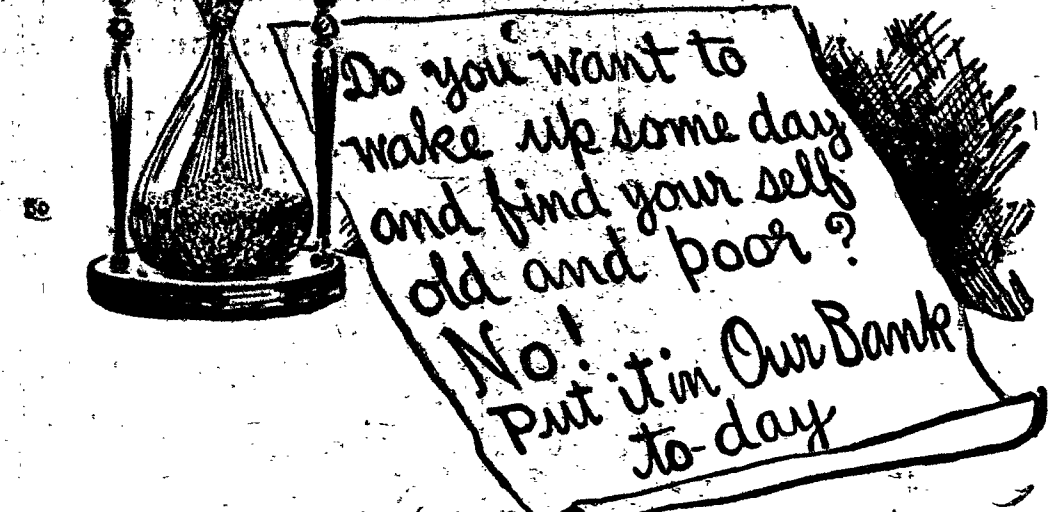 Do you want to
wake up some day
and find your self
old and poor?
No!
Put it in Our Bank
to-day